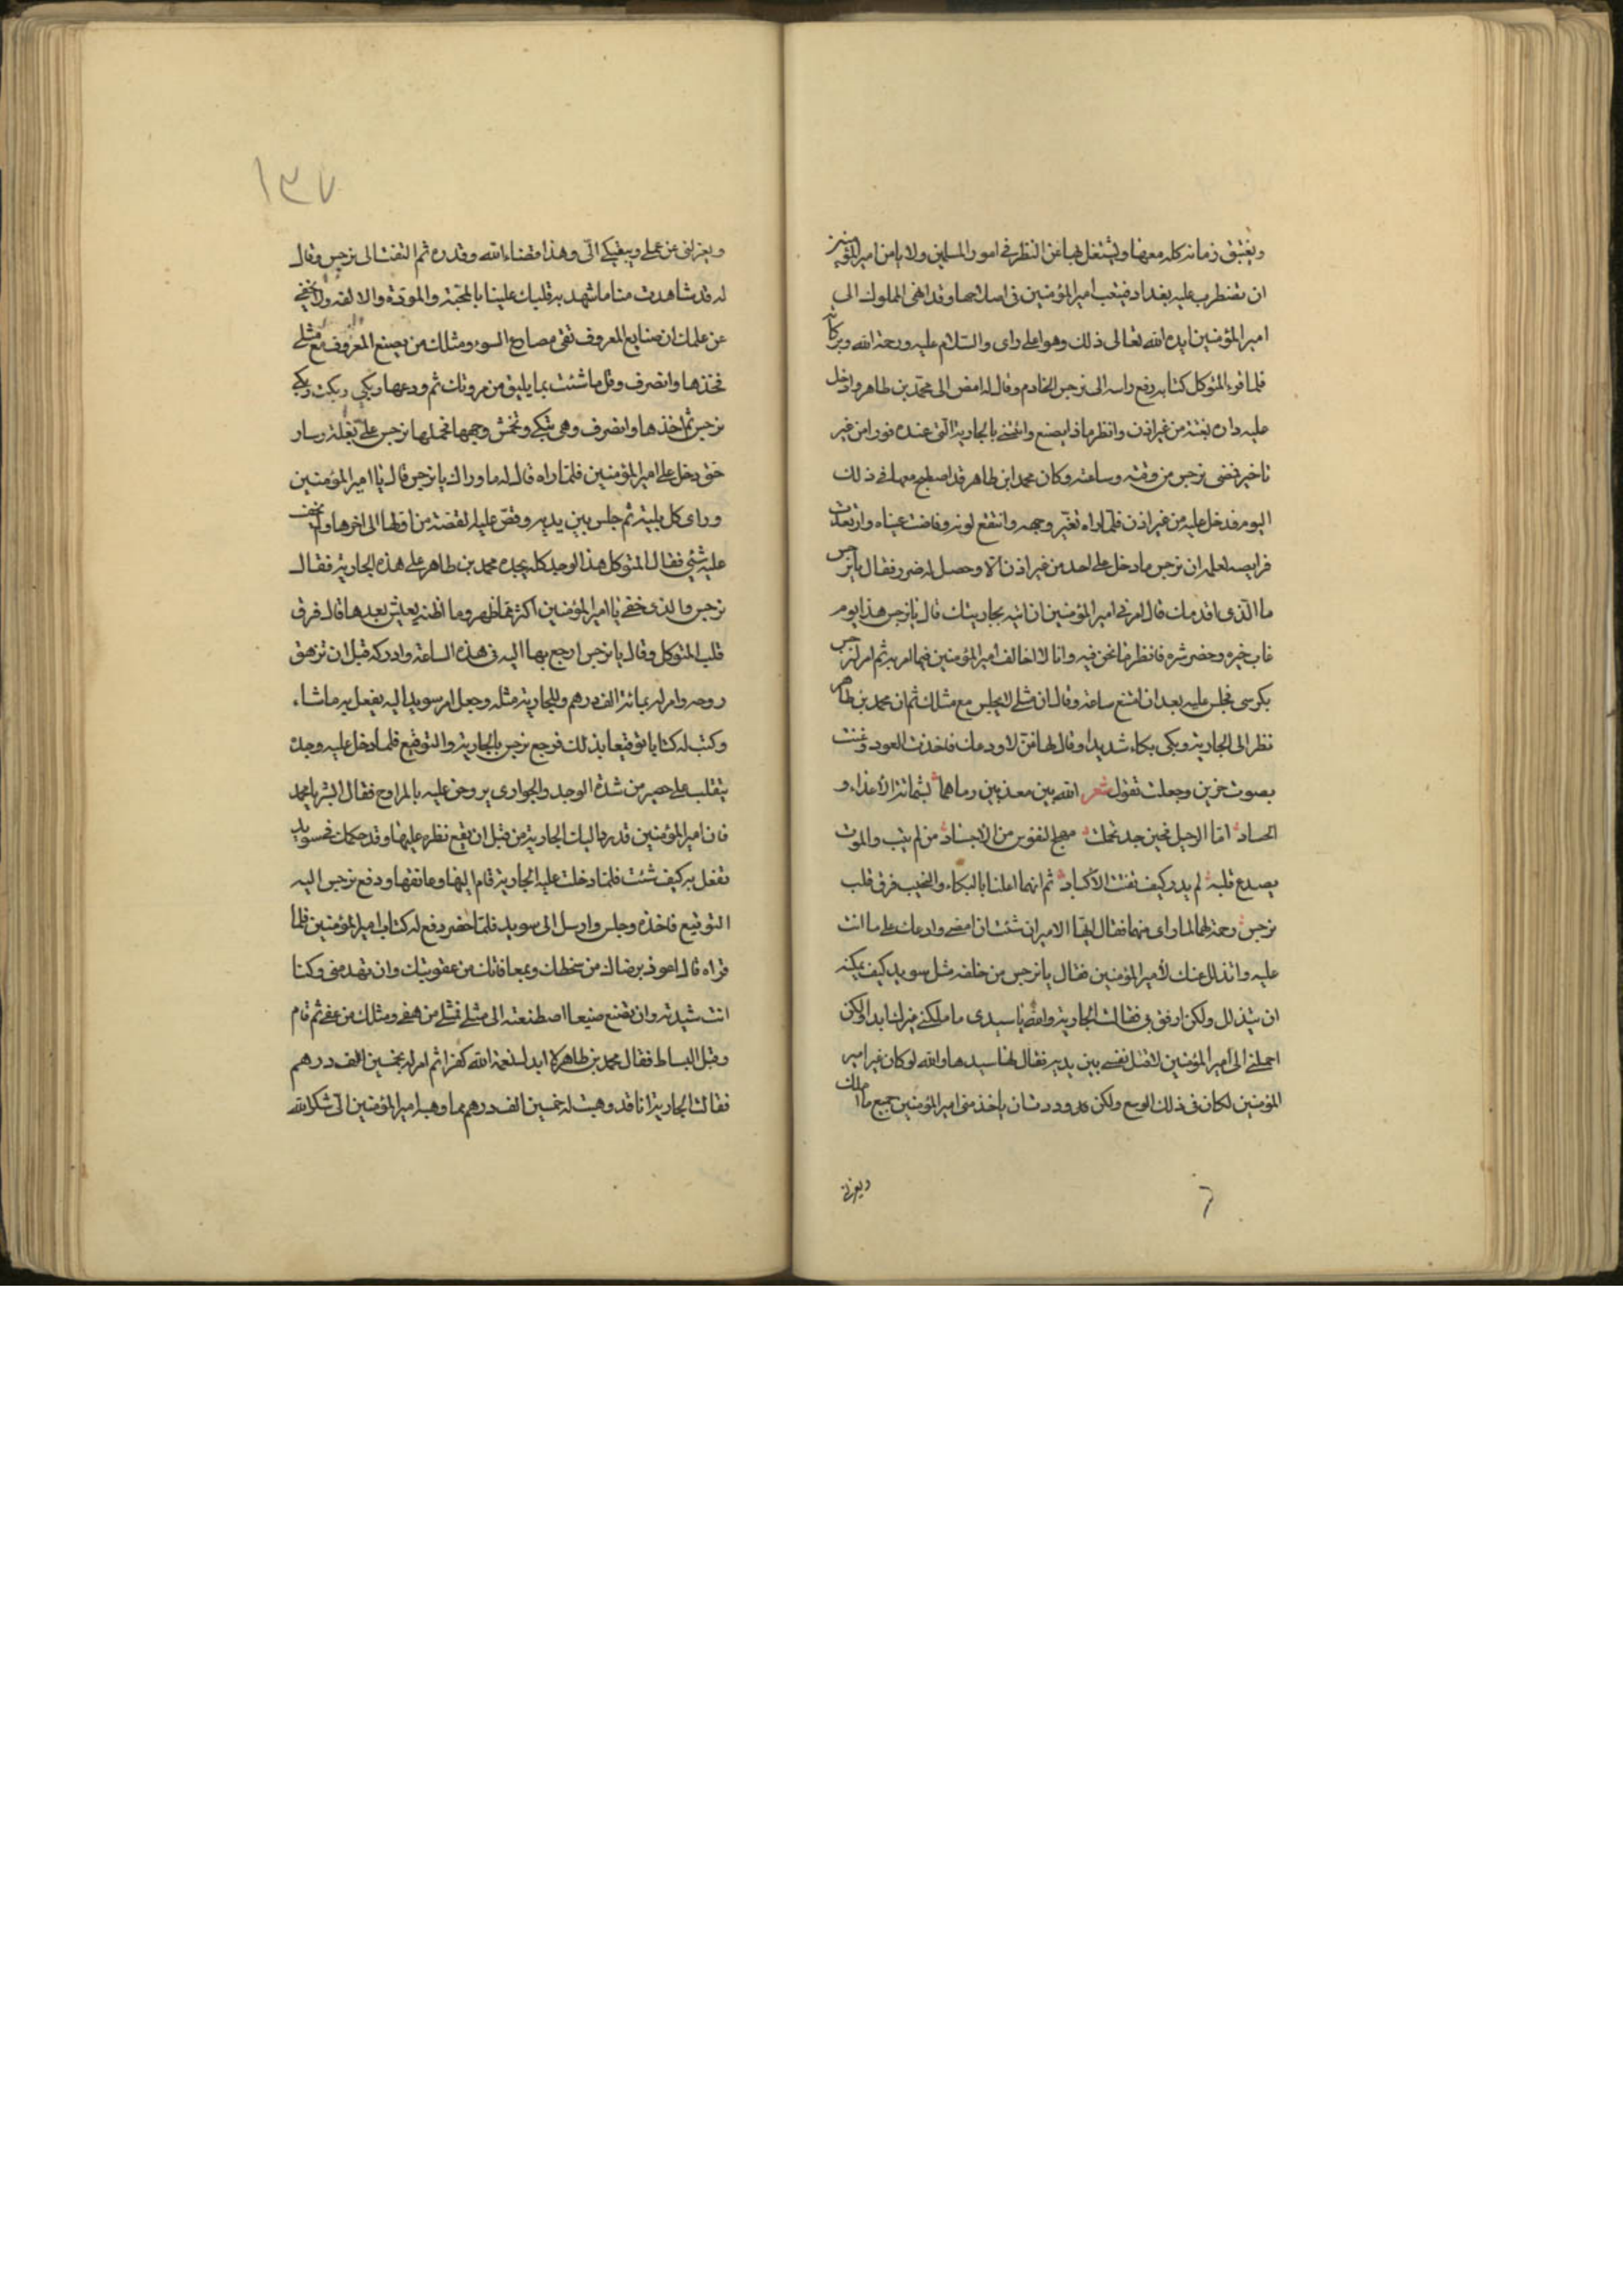 ويغتبق زمانه كله معها ويشتغل بها عن النظر في امور المسلمين ولا يامن امير المؤمنين
ان تضطرب عليه بغداد فيتعب امير المؤمنين في اصلاحها وقد انهى المملوك الى
امير المؤمنين ايده الله تعالى ذلك وهو اعلى راى والسلام عليه ورحمة الله وبركاته
فلما قرء المتوكل كتابه رفع راسه الى نرجس الخادم وقال له امض الى محمد بن طاهر وادخل
عليه داره بغتة من غير اذن وانظر ماذا يصنع وائتنى بالجارية التى عنده فورا من غير
تاخير فمضى نرجس من وقته وساعته وكان محمد ابن طاهر قد اصطبح معها في ذلك
اليوم فدخل عليه من غير اذن فلما راه تغير وجهه وانتقع لونه وفاضت عيناه وارتعدت
فرايصه لعلمه ان نرجس ما دخل على احد من غير اذن الا وحصل له ضرر فقال يا نرجس
ما الذى اقدمك قال امرنى امير المؤمنين ان اتيه بجاريتك قال يا نرجس هذا يوم
غاب خيره وحضر شره فانظر ما نحن فيه وانا لا اخالف امير المؤمنين فيما امر به ثم امر لنرجس
بكرسى فجلس عليه بعد ان امتنع ساعة وقال ان مثلى لا يجلس مع مثلك ثم ان محمد بن طاهر
نظر الى الجارية وبكى بكاء شديدا وقال لها غنى لاودعك فاخذت العود وغنت
بصوت حزين وجعلت تقول شعر الله بين معذبين رماهما بشماتة الأعداء و
الحساد اما الرحيل فحين جد تحملت مهج النفوس من الاجساد من لم يبت والموت
يصدع قلبه لم يدر كيف تفتت الاكباد ثم انهما اعلنا بالبكاء والنحيب فرق قلب
نرجس رحمة لهما لما راى منهما فقال ايها الامير ان شئت ان امضى وادعك على ما انت
عليه واتذلل عنك لأمير المؤمنين فقال يا نرجس من خلفه مثل سويد كيف يمكنه
ان يتذلل ولكن ارفق بى فقالت الجارية والله يا سيدى ما ملكنى غيرك ابدا ولكن
احملنى الى امير المؤمنين لاقتل نفسى بين يديه فقال لها سيدها والله لو كان غير امير
المؤمنين لكان في ذلك الوسع ولكن وددت ان ياخذ منى امير المؤمنين جميع ما املك
ويعزلنى
١٣٧
ويعزلنى عن عملى ويبقيكى الىّ وهذا قضاء الله وقدره ثم التفت الى نرجس وقال
له قد شاهدت منا ما شهد به قلبك علينا بالمحبة والمودة والالفة ولا يخفى
عن علمك ان صنايع المعروف تقى مصارع السوء ومثلك من يصنع المعروف مع مثلى
فخذها وانصرف وقل ما شئت بما يليق من مروتك ثم ودعها وبكى وبكت وبكى
نرجس ثم اخذها وانصرف وهى تبكى وتخمش وجهها فحملها نرجس على بغلة وسار
حتى دخل على امير المؤمنين فلما راه قال له ما وراك يا نرجس قال يا امير المؤمنين
وراى كل بلية ثم جلس بين يديه وقص عليه القصة من اولها الى اخرها ولم يخف
عليه شئ فقال المتوكل هذا الوجد كله يجده محمد بن طاهر على هذه الجارية فقال
نرجس والذى خفى يا امير المؤمنين اكثر مما ظهر وما اظنه يعيش بعدها قال فرق
قلب المتوكل وقال يا نرجس ارجع بها اليه في هذه الساعة وادركه قبل ان تزهق
روحه وامر له بمائة الف درهم وللجارية مثله وجعل امر سويد اليه يفعل به ما شاء
وكتب له كتابا توقيعا بذلك فرجع نرجس بالجارية والتوقيع فلما دخل عليه وجده
يتقلب على حصير من شدة الوجد والجوارى يروحن عليه بالمراوح فقال ابشر يا محمد
فان امير المؤمنين قد رد اليك الجارية من قبل ان يقع نظره عليها وقد حكمك في سويد
تفعل به كيف شئت فلما دخلت عليه الجارية قام اليها وعانقها ودفع نرجس اليه
التوقيع فاخذه وجلس وارسل الى سويد فلما حضر دفع له كتاب امير المؤمنين فلما
قراه قال اعوذ برضاك من سخطك وبمعافاتك من عقوبتك وان تهدم منى ركنا
انت شيدته وان تضيع صنيعا اصطنعته الى مثلى فمثلى من هفى ومثلك من عفى ثم قام
وقبل البساط فقال محمد بن طاهر لا ابدل نعمة الله كفرا ثم امر له بخمسين الف درهم
فقالت الجارية انا قد وهبت له خمسين الف درهم مما وهبه امير المؤمنين الى شكرا لله